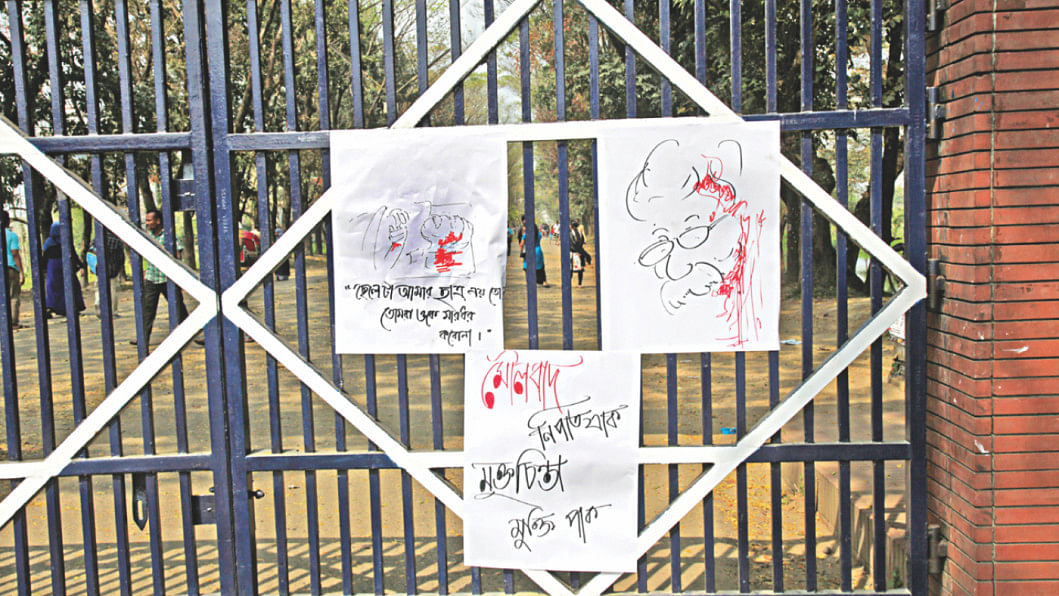 "ছেলেটা আমার ছাত্র নয় তো
তোমরা ওকে মারধর
করোনা।"
মৌলবাদ
নিপাত যাক
মুক্তচিন্তা
মুক্তি পাক